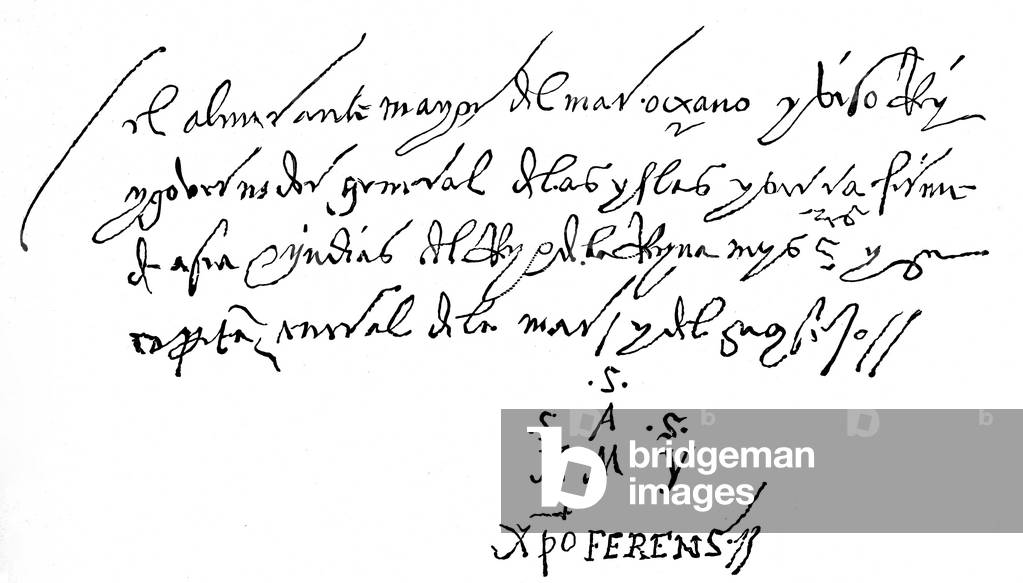 el almirante mayor del mar oceano y viso Rey
y governador general de las yslas y tierra firme
de asia e yndias del Rey e de la Reyna mys S y su
capitan general de la mar y del
.S.
S. A .S.
X M Y
Xpo FERENS.//
bridgeman
images